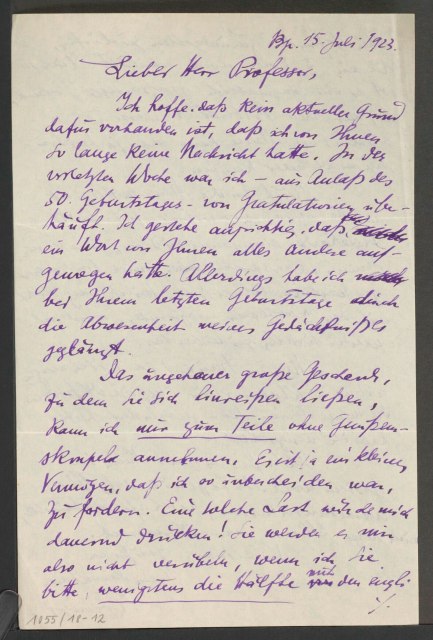 Bp. 15. Juli 1923.
Lieber Herr Professor,
Ich hoffe, daß kein aktueller Grund
dafür vorhanden ist, daß ich von Ihnen
so lange keine Nachricht hatte. In der
vorletzten Woche war ich – aus Anlaß des
50. Geburtstages – von Gratulationen über-
häuft. Ich gestehe aufrichtig, daß
ein Wort von Ihnen alles andere auf-
gewogen hätte. Allerdings habe ich
bei Ihrem letzten Geburtstage durch
die Abwesenheit meines Gedächtnißes
geglänzt.
Das ungeheuer große Geschenk,
zu dem Sie sich hinreißen ließen,
kann ich nur zum Teile ohne Gewißens-
skrupeln annehmen. Es ist ja ein kleines
Vermögen, daß ich so unbescheiden war,
zu fordern. Eine solche Last würde mich
dauernd drücken! Sie werden es mir
also nicht verübeln, wenn ich Sie
bitte, wenigstens die Hälfte von den engli
./.
1055/18-12